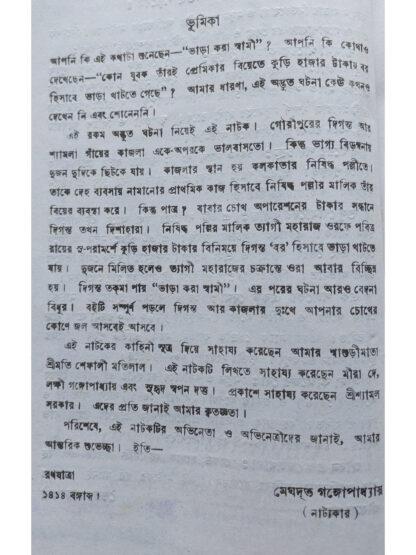 ভূমিকা
আপনি কি এই কথাটা শুনেছেন—“ভাড়া করা স্বামী”? আপনি কি কোথাও
দেখেছেন—“কোন যুবক তাঁরই প্রেমিকার বিয়েতে কুড়ি হাজার টাকার বর
হিসাবে ভাড়া খাটতে গেছে”? আমার ধারণা, এই অদ্ভুত ঘটনা কেউ কখনও
দেখেন নি এবং শোনেননি।
এই রকম অদ্ভুত ঘটনা নিয়েই এই নাটক। গৌরীপুরের দিগন্ত আর
শ্যামলা গাঁয়ের কাজলা একে-অপরকে ভালবাসতো। কিন্তু ভাগ্য বিড়ম্বনায়
দুজন দুদিকে ছিটকে যায়। কাজলার স্থান হয় কলকাতার নিষিদ্ধ পল্লীতে।
তাকে দেহ ব্যবসায় নামানোর প্রাথমিক কাজ হিসাবে নিষিদ্ধ পল্লীর মালিক তাঁর
বিয়ের ব্যবস্থা করে। কিন্তু পাত্র? বাবার চোখ অপারেশনের টাকার সন্ধানে
দিগন্ত তখন দিশাহারা। নিষিদ্ধ পল্লির মালিক ত্যাগী মহারাজ ওরফে পবিত্র
রায়ের সু-পরামর্শে কুড়ি হাজার টাকার বিনিময়ে দিগন্ত ‘বর’ হিসাবে ভাড়া খাটতে
যায়। দুজনে মিলিত হলেও ত্যাগী মহারাজের চক্রান্তে ওরা আবার বিচ্ছিন্ন
হয়। দিগন্ত তকমা পায় “ভাড়া করা স্বামী”। এর পরের ঘটনা আরও বেদনা
বিধুর। বইটি সম্পূর্ণ পড়লে দিগন্ত আর কাজলার দুঃখে আপনার চোখের
কোণে জল আসবেই আসবে।
এই নাটকের কাহিনী সূত্র দিয়ে সাহায্য করেছেন আমার শ্বাশুড়ীমাতা
শ্রীমতি শেফালী মতিলাল। এই নাটকটি লিখতে সাহায্য করেছেন মীরা দে,
লক্ষী গঙ্গোপাধ্যায় এবং সুহৃদ স্বপন দত্ত। প্রকাশে সাহায্য করেছেন শ্রীশ্যামল
সরকার। এদের প্রতি জানাই আমার কৃতজ্ঞতা।
পরিশেষে, এই নাটকটির অভিনেতা ও অভিনেত্রীদের জানাই, আমার
আন্তরিক শুভেচ্ছা। ইতি—
রথযাত্রা
১৪১৪ বঙ্গাব্দ।
মেঘদূত গঙ্গোপাধ্যায়
(নাট্যকার)